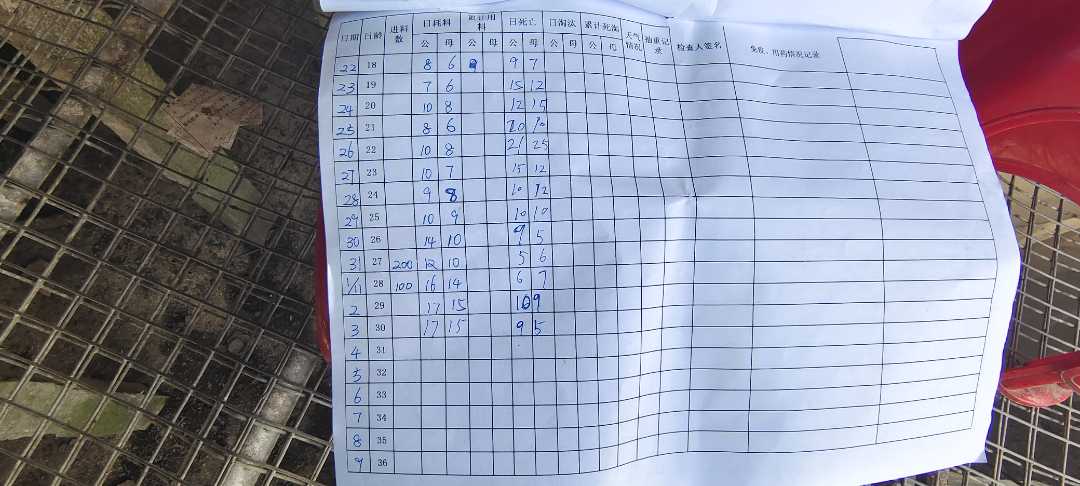 日期 日龄 进料数 日耗料 日死亡 日淘汰 累计死淘 天气情况 抽重记录 检查人签名 免疫、用药情况记录
公 母 公 母 公 母 公 母 公 母
22 18 8 6 9 7
23 19 7 6 15 12
24 20 10 8 12 15
25 21 8 6 20
26 22 10 8 21 25
27 23 10 7 15 12
28 24 9 8 10 12
29 25 10 9 10 10
30 26 14 10 9 5
31 27 200 12 10 5 6
1/11 28 100 16 14 6 7
2 29 17 15 10 9
3 30 17 15 9 5
4 31
5 32
6 33
7 34
8 35
9 36